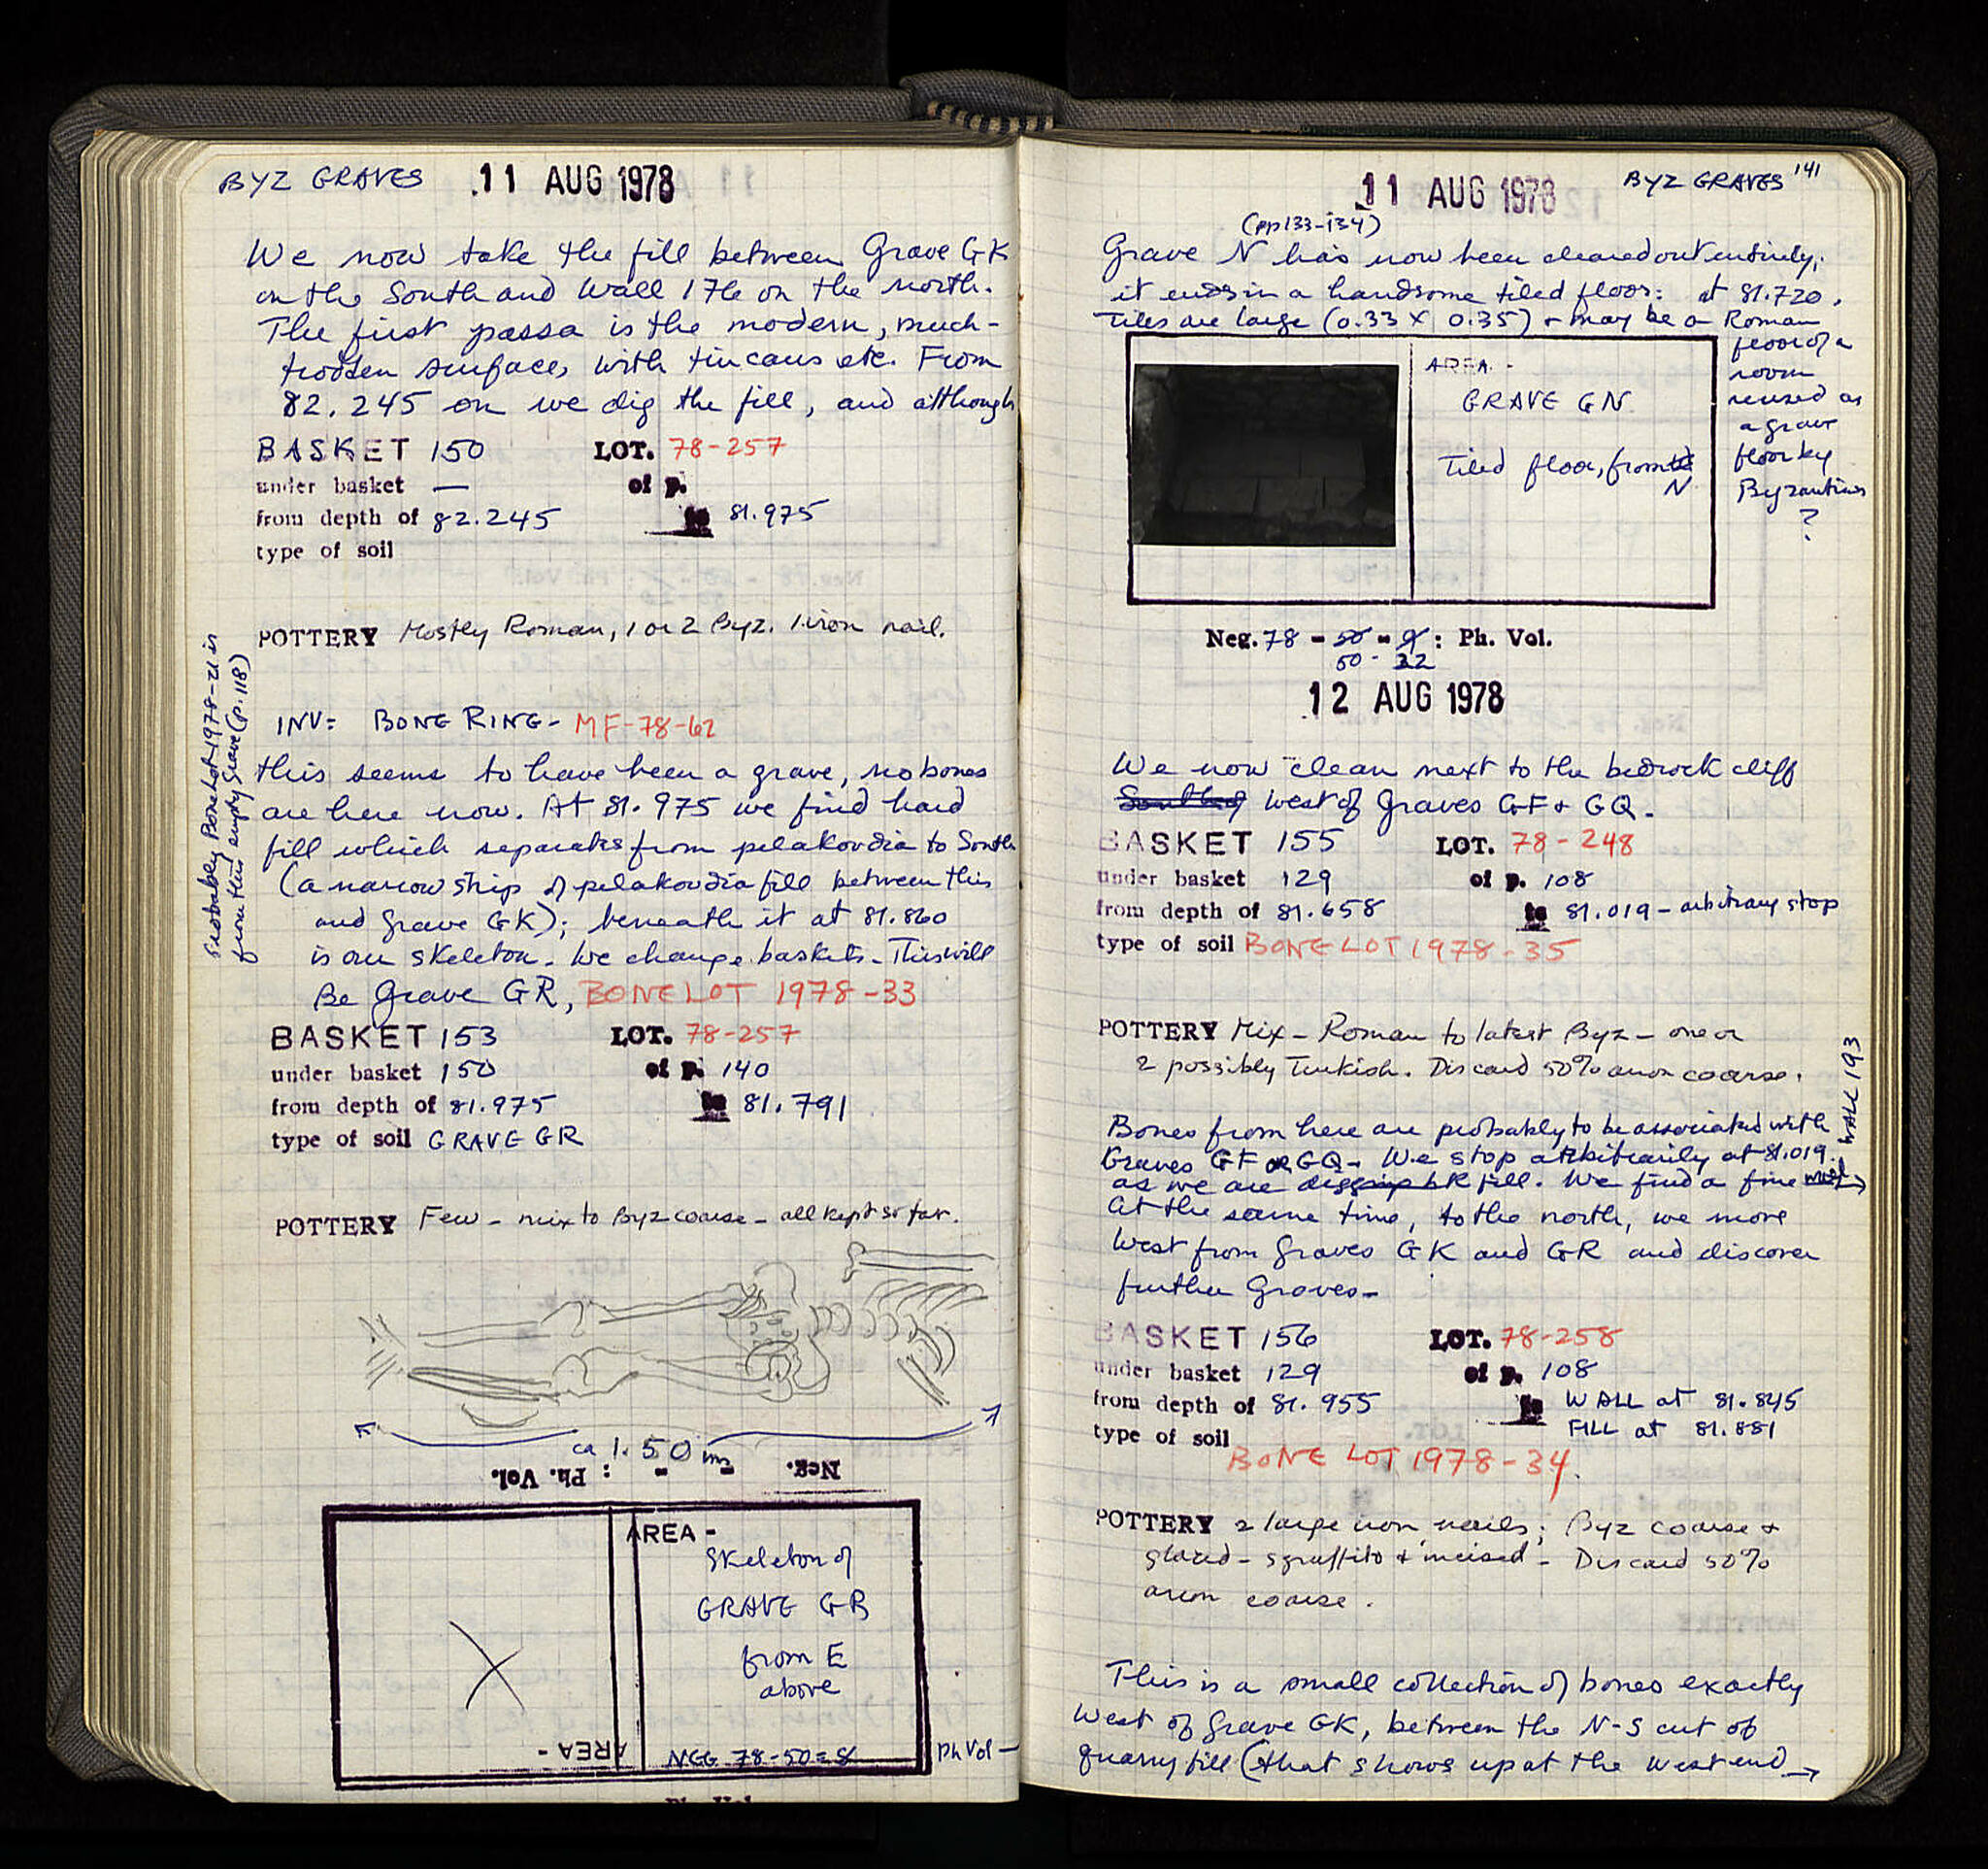 BYZ GRAVES 11 AUG 1978
We now take the fill between Grave GK
on the South and Wall 176 on the north.
The first passa is the modern, much-
trodden surface, with tin cans etc. From
82.245 on we dig the fill, and although
BASKET 150 LOT. 78-257
under basket — of p.
from depth of 82.245 to 81.975
type of soil
POTTERY Mostly Roman, 1 or 2 Byz. 1 iron nail.
INV: BONE RING - MF-78-62
this seems to have been a grave, no bones
are here now. At 81.975 we find hard
fill which separates from pelakoudia to South
(a narrow strip of pelakoudia fill between this
and Grave GK); beneath it at 81.860
is our skeleton. We change baskets. This will
Be Grave GR, BONE LOT 1978-33
Probably Bone Lot 1978-21 is
from this empty grave (p. 118)
BASKET 153 LOT. 78-257
under basket 150 of p. 140
from depth of 81.975 to 81.791
type of soil GRAVE GR
POTTERY Few - mix to Byz coarse - all kept so far.
ca 1.50 m
Neg. - - : Ph. Vol.
AREA -
Skeleton of
GRAVE GR
from E
above
AREA -
NEG 78-50-8 Ph Vol —
11 AUG 1978 BYZ GRAVES 141
(pp 133-134)
Grave N has now been cleared out entirely;
it ends in a handsome tiled floor: at 81.720.
Tiles are large (0.33 X 0.35) + may be a Roman
floor of a
room
reused as
a grave
floor by
Byzantines
?
AREA -
GRAVE GN
Tiled floor, from
N
Neg. 78 - 50 - 9 : Ph. Vol.
50 - 22
12 AUG 1978
We now clean next to the bedrock cliff
West of Graves GF + GQ.
BASKET 155 LOT. 78-248
under basket 129 of p. 108
from depth of 81.658 to 81.019 - arbitrary stop
type of soil BONE LOT 1978-35
POTTERY Mix - Roman to latest Byz - one or
2 possibly Turkish. Discard 50% anon coarse.
Bones from here are probably to be associated with
Graves GF or GQ. We stop arbitrarily at 81.019
as we are digging bk fill. We find a fine →
WALL 193
At the same time, to the north, we move
West from Graves GK and GR and discover
further Graves-
BASKET 156 LOT. 78-258
under basket 129 of p. 108
from depth of 81.955 to WALL at 81.845
FILL at 81.881
type of soil
BONE LOT 1978-34.
POTTERY 2 large iron nails; Byz coarse +
glazed - sgraffito + incised - Discard 50%
anon coarse.
This is a small collection of bones exactly
West of Grave GK, between the N-S cut of
quarry fill (that shows up at the west end →